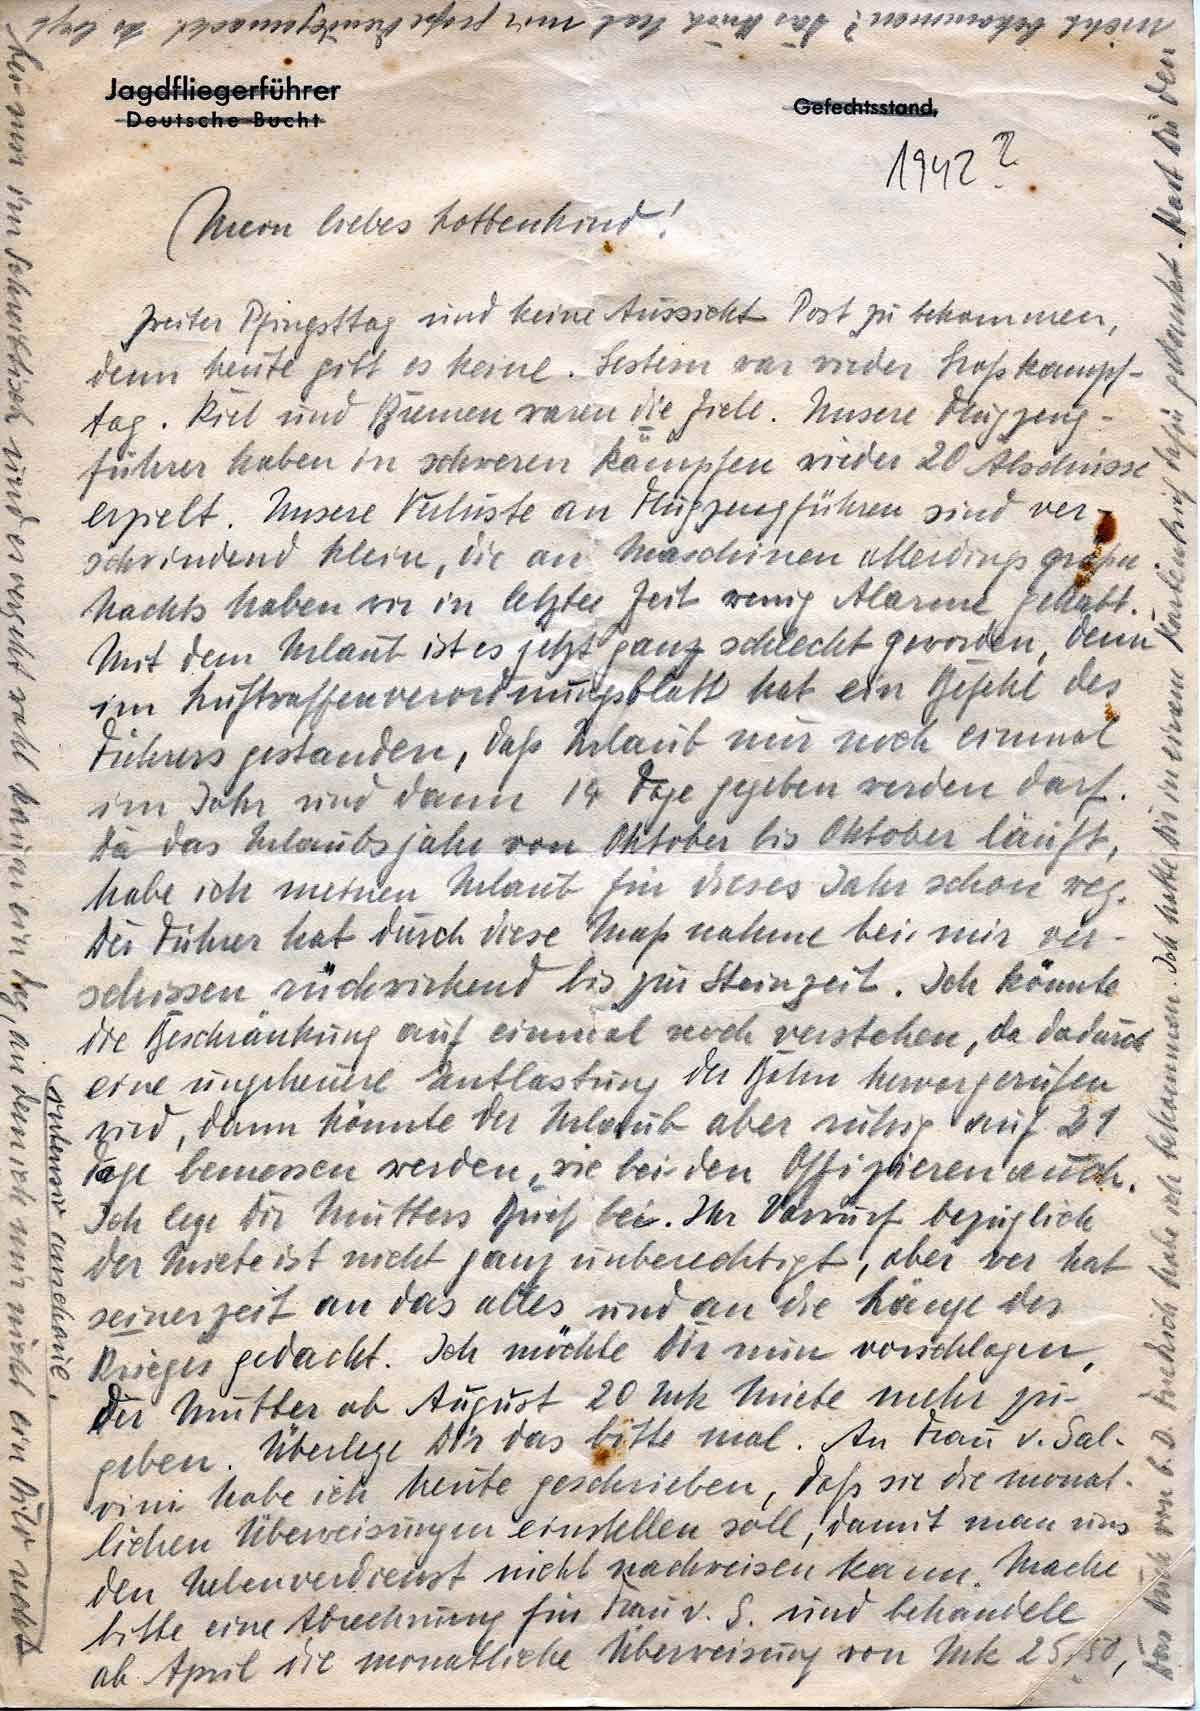 Jagdfliegerführer
Deutsche Bucht
Gefechtsstand,
1942?
Mein liebes Lottenkind!
Zweiter Pfingsttag und keine Aussicht Post zu bekommen,
denn heute gibt es keine. Gestern war wieder Großkampf-
tag. Kiel und Bremen waren die Ziele. Unsere Flugzeug-
führer haben in schweren Kämpfen wieder 20 Abschüsse
erzielt. Unsere Verluste an Flugzeugführern sind ver-
schwindend klein, die an Maschinen allerdings größer.
Nachts haben wir in letzter Zeit wenig Alarme gehabt.
Mit dem Urlaub ist es jetzt ganz schlecht geworden, denn
im Luftwaffenverordnungsblatt hat ein Befehl des
Führers gestanden, daß Urlaub nur noch einmal
im Jahr und dann 14 Tage gegeben werden darf.
Da das Urlaubsjahr von Oktober bis Oktober läuft,
habe ich meinen Urlaub für dieses Jahr schon weg.
Der Führer hat durch diese Maßnahme bei mir ver-
schissen rückwirkend bis zur Steinzeit. Ich könnte
die Beschränkung auf einmal noch verstehen, da dadurch
eine ungeheuere Entlastung der Bahn hervorgerufen
wird, dann könnte der Urlaub aber ruhig auf 21
Tage bemessen werden, wie bei den Offizieren auch.
Ich lege Dir Mutters Brief bei. Ihr Vorwurf bezüglich
der Miete ist nicht ganz unberechtigt, aber wer hat
seinerzeit an das alles und an die Länge des
Krieges gedacht. Ich möchte Dir nun vorschlagen,
der Mutter ab August 20 Mk Miete mehr zu
geben. Überlege Dir das bitte mal. An Frau v. Sal-
vini habe ich heute geschrieben, daß sie die monat-
lichen Überweisungen einstellen soll, damit man uns
den Nebenverdienst nicht nachweisen kann. Mache
bitte eine Abrechnung für Frau v. S. und behandele
ab April die monatliche Überweisung von Mk 25,50,
Das Buch von b. D. Friedrich habe ich bekommen. Ich hatte Dir in einem Kartenbrief dafür gedankt. Hast Du den
nicht bekommen? Das Buch hat mir große Freude gemacht. Es liegt
bei mir im Schreibtisch und es vergeht wohl kaum ein Tag, an dem ich mir nicht ein Bild recht
intensiv anschaue.